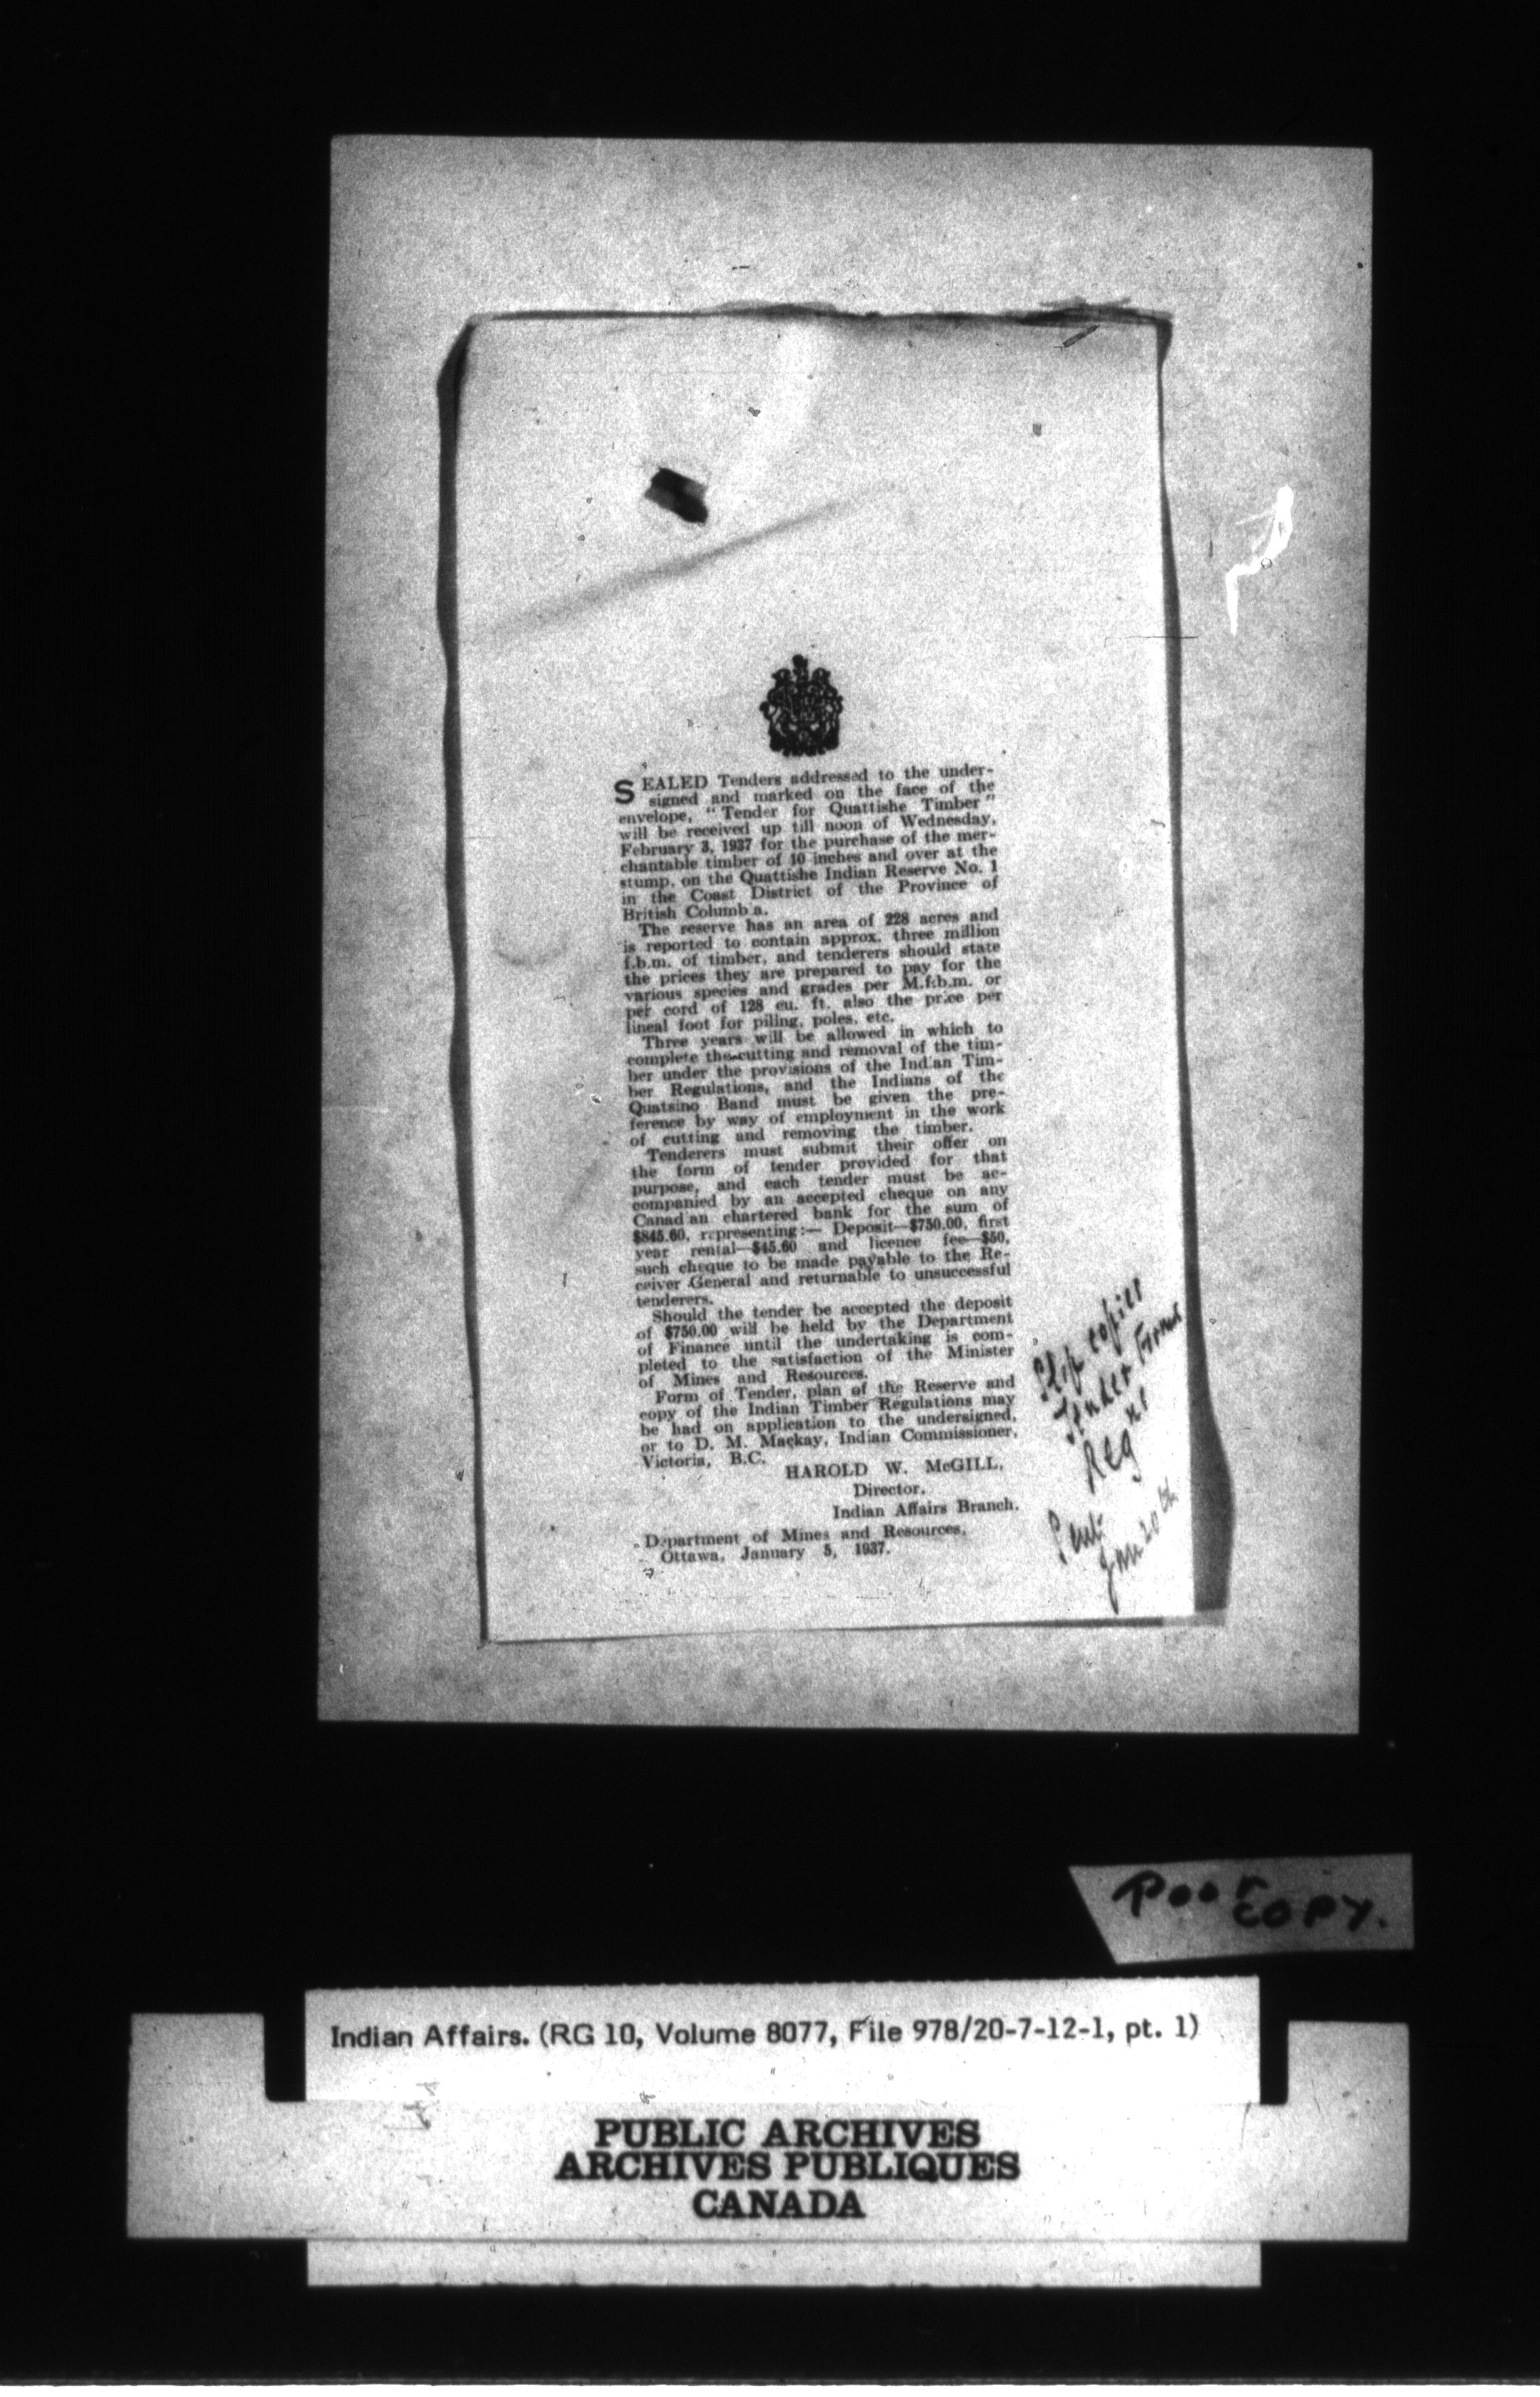 SEALED Tenders addressed to the under-
signed and marked on the face of the
envelope, "Tender for Quattishe Timber"
will be received up till noon of Wednesday,
February 3, 1937 for the purchase of the mer-
chantable timber of 10 inches and over at the
stump, on the Quattishe Indian Reserve No. 1
in the Coast District of the Province of
British Columb a.
The reserve has an area of 228 acres and
is reported to contain approx. three million
f.b.m. of timber, and tenderers should state
the prices they are prepared to pay for the
various species and grades per M.f.b.m. or
per cord of 128 cu. ft. also the price per
lineal foot for piling, poles, etc.
Three years will be allowed in which to
complete the cutting and removal of the tim-
ber under the provisions of the Ind an Tim-
ber Regulations, and the Indians of the
Quatsino Band must be given the pre-
ference by way of employment in the work
of cutting and removing the timber.
Tenderers must submit their offer on
the form of tender provided for that
purpose, and each tender must be ac-
companied by an accepted cheque on any
Canad an chartered bank for the sum of
$845.60, representing:— Deposit—$750.00, first
year rental—$45.60 and licence fee—$50,
such cheque to be made payable to the Re-
ceiver General and returnable to unsuccessful
tenderers.
Should the tender be accepted the deposit
of $750.00 will be held by the Department
of Finance until the undertaking is com-
pleted to the satisfaction of the Minister
of Mines and Resources.
Form of Tender, plan of the Reserve and
copy of the Indian Timber Regulations may
be had on application to the undersigned,
or to D. M. Mackay, Indian Commissioner,
Victoria, B.C.
HAROLD W. McGILL,
Director,
Indian Affairs Branch.
Department of Mines and Resources,
Ottawa, January 5, 1937.
copies
Tender Forms
Reg
Jan 20th
Poor
COPY.
Indian Affairs. (RG 10, Volume 8077, File 978/20-7-12-1, pt. 1)
PUBLIC ARCHIVES
ARCHIVES PUBLIQUES
CANADA